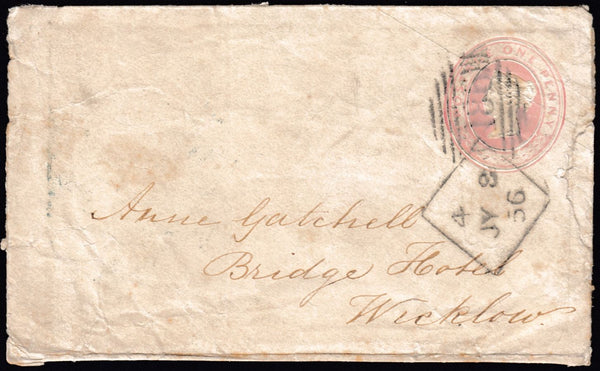 ONE PENNY
186
4
JY 8
56
Anne Gatchell
Bridge Hotel
Wicklow.